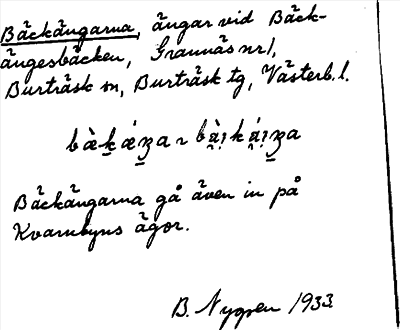 Bäckängarna, ängar vid Bäck-
ängesbäcken, Grannäs nr 1,
Burträsk sn, Burträsk tg, Västerb. l.
Bäckängarna gå även in på
Kvarnbyns ägor.
B. Nygren 1933.